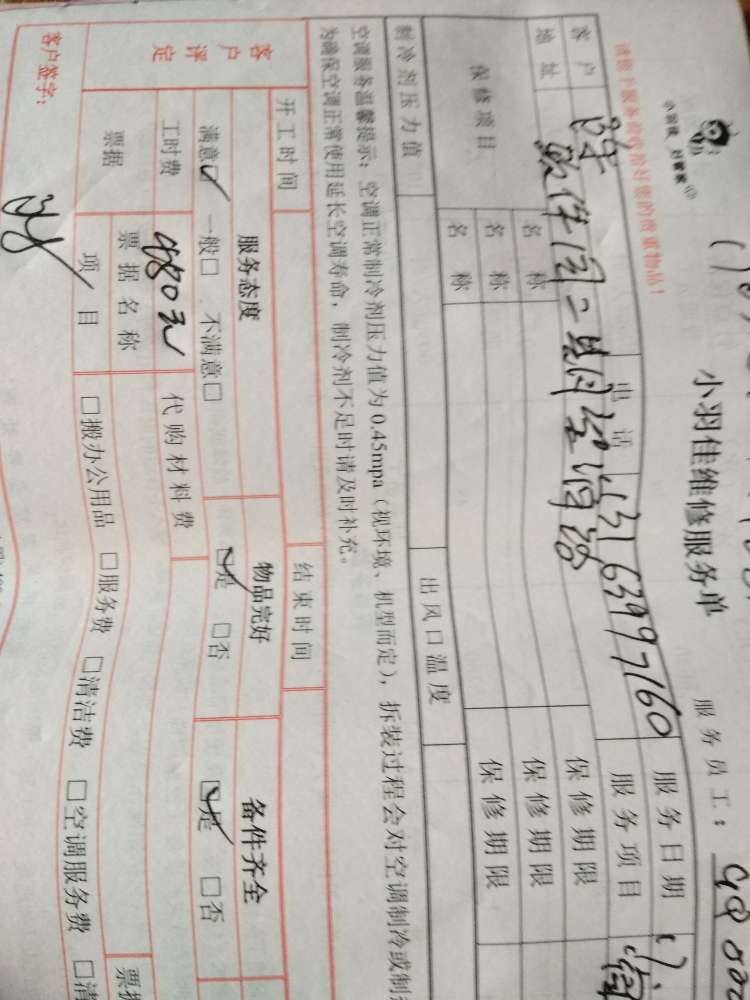 小羽佳 好管家
小羽佳维修服务单
服务员工：
请您于服务前收拾好您的贵重物品！
客户 陈 电话 13163997160 服务日期
地址 软件园二期 服务项目
保修项目 名称 保修期限
名称 保修期限
名称 保修期限
制冷剂压力值 出风口温度
空调服务温馨提示：空调正常制冷剂压力值为0.45mpa（视环境、机型而定），拆装过程会对空调制冷或制
为确保空调正常使用延长空调寿命，制冷剂不足时请及时补充。
开工时间 结束时间
客户评定 服务态度 物品完好 备件齐全
满意☑ 一般□ 不满意□ ☑是 □否 ☑是 □否
工时费 480元 代购材料费
票据 票据名称 票据
项目 □搬办公用品 □服务费 □清洁费 □空调服务费 □清
客户签字：